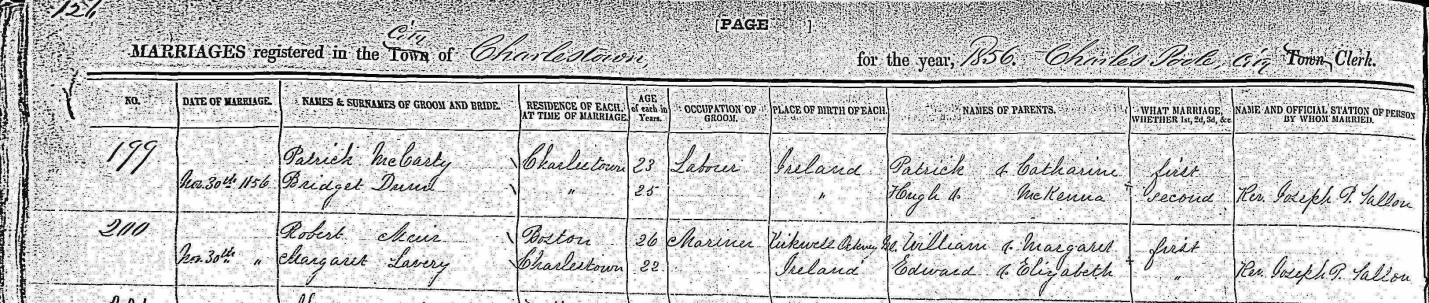 126
[PAGE ]
MARRIAGES registered in the Town City of Charlestown, for the year, 1856. Charles Poole, City Town Clerk.
NO. DATE OF MARRIAGE. NAMES & SURNAMES OF GROOM AND BRIDE. RESIDENCE OF EACH, AT TIME OF MARRIAGE. AGE of each in Years. OCCUPATION OF GROOM. PLACE OF BIRTH OF EACH. NAMES OF PARENTS. WHAT MARRIAGE, WHETHER 1st, 2d, 3d, &c NAME AND OFFICIAL STATION OF PERSON BY WHOM MARRIED.
199 Patrick McCarty Charlestown 23 Labour Ireland Patrick & Catharine first
Nov. 30th 1856 Bridget Dunn " 25 " Hugh & McKenna second Rev. Joseph P.
200 Robert Muir Boston 26 Mariner Kirkwell Orkney William & Margaret first
Nov. 30th " Margaret Lavery Charlestown 22 Ireland Edward & Elizabeth " Rev. Joseph P.